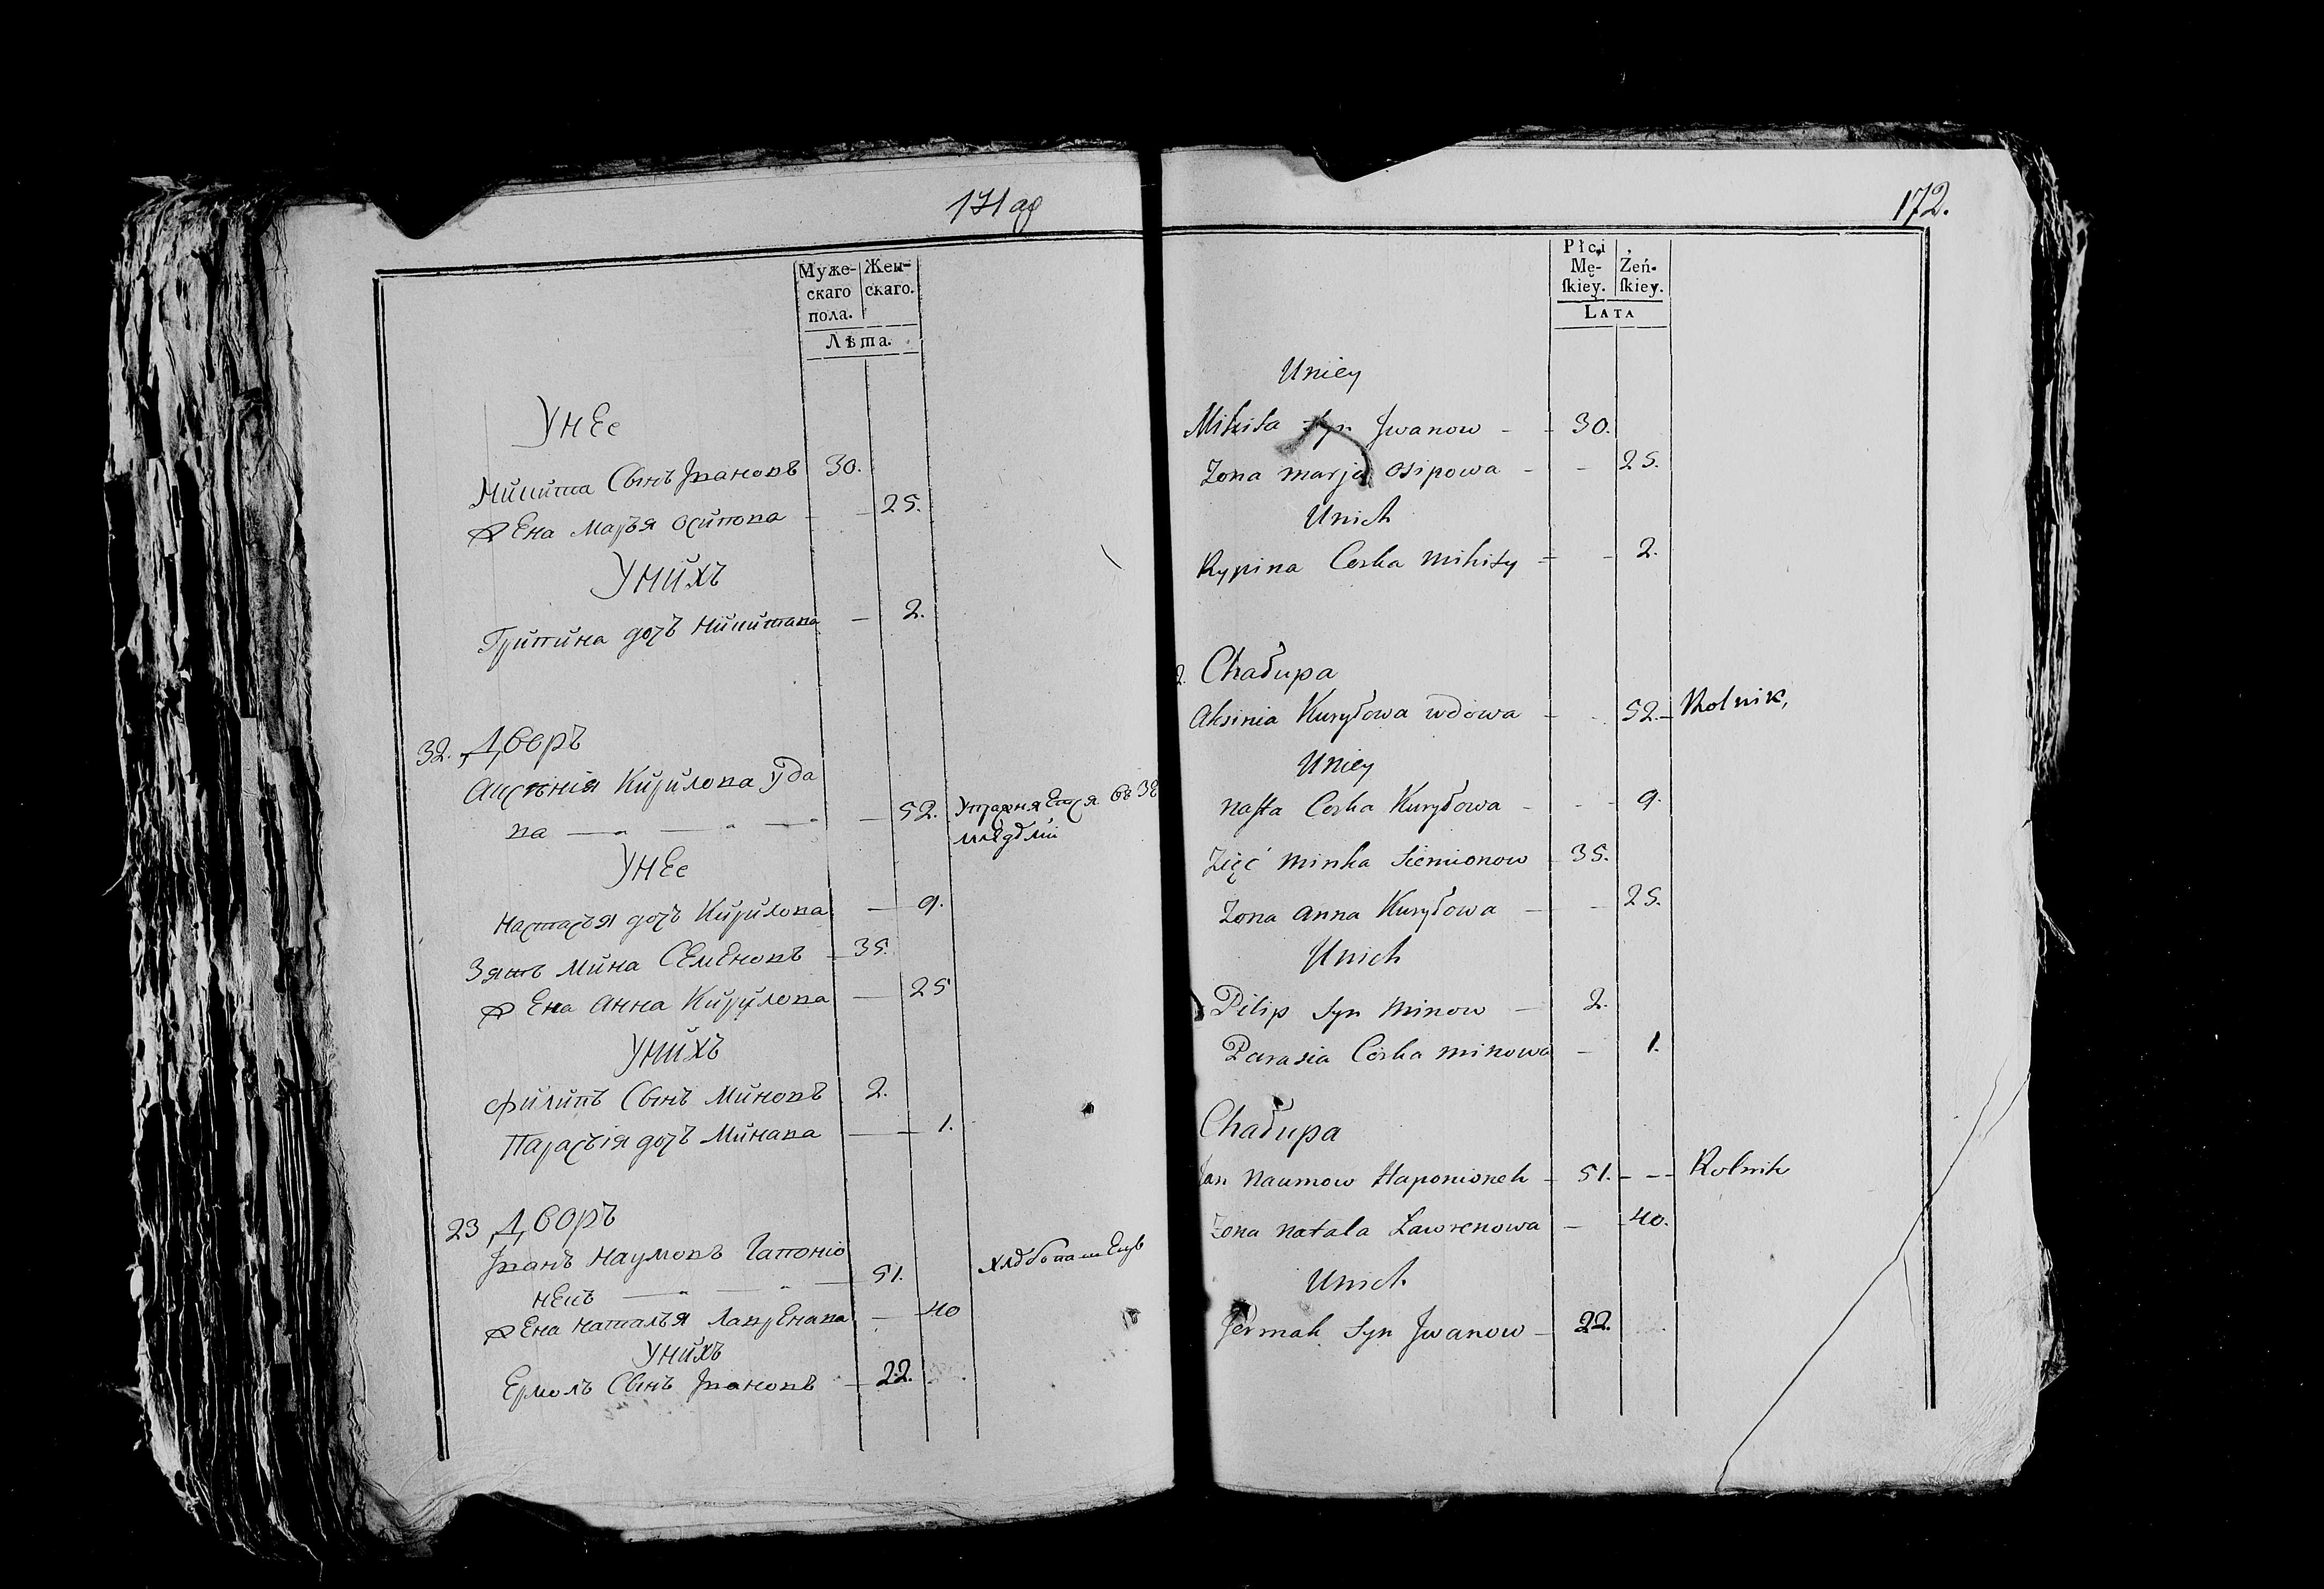 171 об
Муже-
скаго
пола.
Жен-
скаго.
Лѣта.
У нее
Микита Сынъ Ивановъ 30.
жена Марья Осипова 25.
У нихъ
Грипина дочь Микитава 2.
32. Дворъ
Аксѣнія Кирилова Удо
ва 52.
У нее
Настасья дочь Кирилова 9.
Зять Мина Семеновъ 35.
жена Анна Кирилова 25
У нихъ
Филипъ Сынъ Миновъ 2.
Парасъія дочъ Минава 1.
23 Дворъ
Иванъ Наумовъ Гапоніо
некъ 51. хлѣбопашецъ
жена Наталья Лавренава 40
У нихъ
Ермолъ Сынъ Ивановъ 22.
172.
Płci
Mę-
ſkiey.
Żeń-
ſkiey.
LATA
Uniey
Mikita Syn Jwanow 30.
Zona marja Osipowa 25.
Unich
Rypina Corka Mikity 2.
2. Chałupa
Aksinia Kuryłowa wdowa 52. Rolnik,
Uniey
Nasta Corka Kuryłowa 9.
Zięć Minka Siemionow 35.
Zona Anna Kuryłowa 25.
Unich
Pilip Syn Minow 2.
Parasia Córka minowa 1.
Chałupa
Jan Naumow Haponionek 51. Rolnik
Zona Natala Ławrenowa 40.
Unich.
Jermak Syn Jwanow 22.